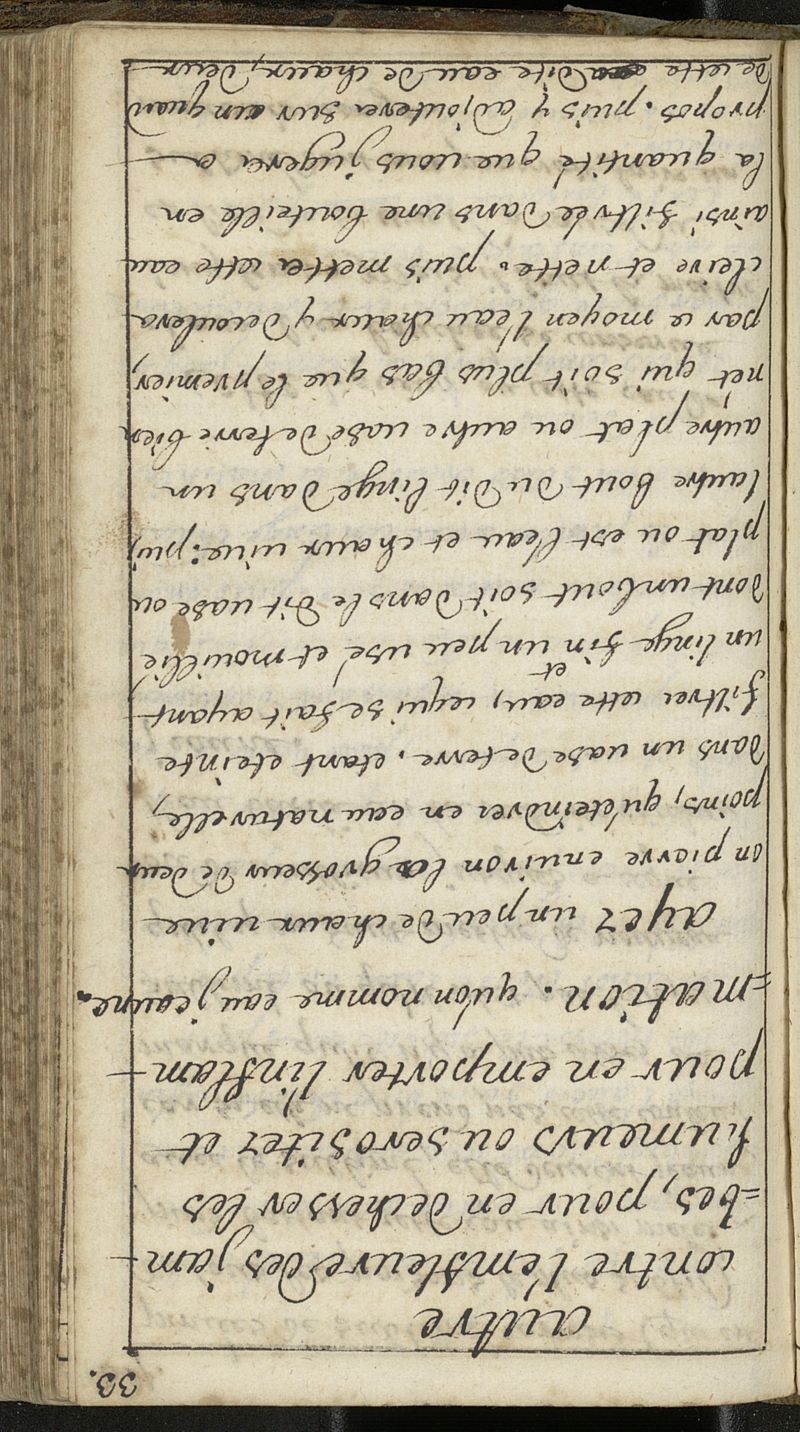 33.
autre
contre l'enfleure des jam-
=bes, pour en dechesser les
humeurs ou serositez et
pour en emporter l'inflam-
=mation. qu'on nomme eau jeaune.
ayez un peu de chaux uiue
en pierre enuiron la grosseur de deux
poins, qu'eteindrez en eau naturelle,
dans un uase de terre. etant eteinte
filtrez cette eau, et cequi se fait ayant
un linge fin un peu usé et mouillié
dont un bout soit dans le dit uase ou
plat ou est l'eau et chaux uiue: puis
lautre bout du dit linge dans un
autre plat ou autre uase de terre bien
net qui soit plus bas que le premier,
par ce moyen l'eau chaux y decoulera
cleire et nette. puis mettez cette eau
ainsi filtrée dans une bouteille en
la quantité que uous jugerez a
propos. puis y adjouterez sur un quard
de cette dite eau de chaux, deux